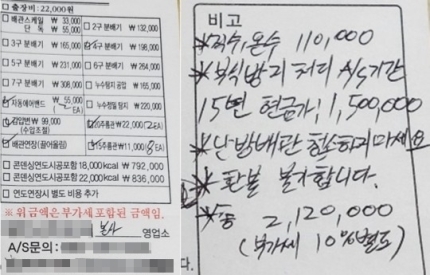 □ 출장비: 22,000원
□ 배관스케일 ₩ 33,000
단독 ₩ 55,000
□ 2구 분배기 ₩ 132,000
□ 3구 분배기 ₩ 165,000
4구 분배기 ₩ 198,000
□ 5구 분배기 ₩ 231,000
□ 6구 분배기 ₩ 264,000
□ 7구 분배기 ₩ 308,000
□ 누수탐지 공압 ₩ 165,000
자동에어밴드 ₩ 55,000
( EA)
□ 누수정밀 탐지 ₩ 220,000
감압변 ₩ 99,000
(수압조절)
주름관 ₩22,000 (2EA)
배관연장(끌어올림)
주름관 ₩11,000 ( EA)
□ 콘덴싱연도시공포함 18,000kcal ₩ 792,000
□ 콘덴싱연도시공포함 22,000kcal ₩ 836,000
□ 연도연장시 별도 비용 추가
※ 위금액은 부가세 포함된 금액임.
본사 영업소
A/S문의:
비고
*직수,온수 110,000
*부식방지 처리 A/S기간
15년 현금가, 1,500,000
*난방배관 청소하지마세요
*환불 불가합니다.
*총 2,120,000
(부가세 10%별도)
다.